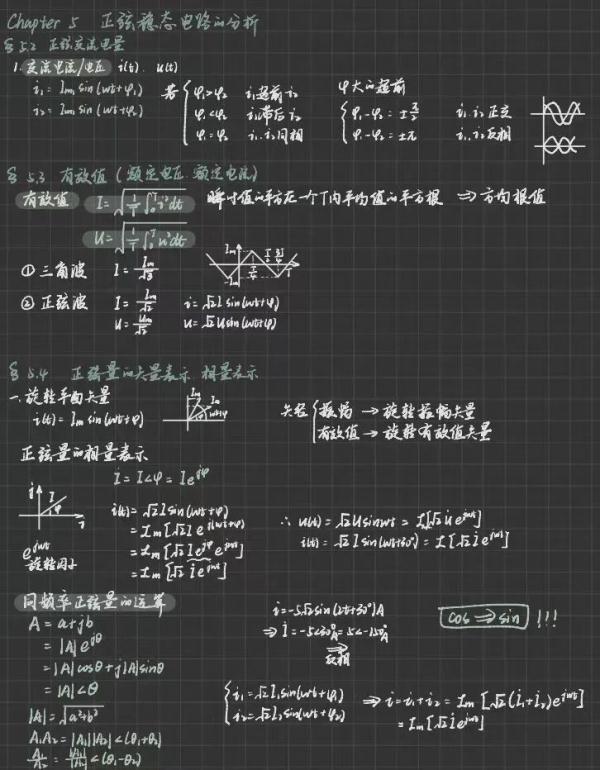 Chapter 5 正弦稳态电路的分析
§ 5.2 正弦交流电量
1. 交流电流/电压 i(t). u(t)
i₁ = Im₁ sin(wt+φ₁)
i₂ = Im₂ sin(wt+φ₂)
若 { φ₁>φ₂ i₁超前i₂
φ₁<φ₂ i₁滞后i₂
φ₁=φ₂ i₁.i₂同相
φ大的超前
{ φ₁-φ₂ = ±π/2 i₁.i₂正交
φ₁-φ₂ = ±π i₁.i₂反相
§ 5.3 有效值 (额定电压.额定电流)
有效值 I = √(1/T ∫₀ᵀ i²dt) 瞬时值的平方在一个T内平均值的平方根 ⇒ 方均根值
U = √(1/T ∫₀ᵀ u²dt)
① 三角波 I = Im/√3
② 正弦波 I = Im/√2 i = √2 I sin(wt+φ)
U = Um/√2 u = √2 U sin(wt+φ)
§ 5.4 正弦量的矢量表示.相量表示
一. 旋转平面矢量
i(t) = Im sin(wt+φ)
矢径 { 振幅 → 旋转振幅矢量
有效值 → 旋转有效值矢量
正弦量的相量表示
İ = I∠φ = Ie^jφ
i(t) = √2 I sin(wt+φ)
= Im[√2 I e^j(wt+φ)]
= Im[√2 I e^jφ e^jwt]
= Im[√2 İ e^jwt]
∴ u(t) = √2 U sinwt = Im[√2 U̇ e^jwt]
i(t) = √2 I sin(wt+60°) = Im[√2 İ e^jwt]
e^jwt
旋转因子
同频率正弦量的运算
A = a+jb
= |A| e^jθ
= |A| cosθ + j|A| sinθ
= |A|∠θ
|A| = √(a²+b²)
A₁A₂ = |A₁||A₂|∠(θ₁+θ₂)
A₁/A₂ = |A₁|/|A₂| ∠(θ₁-θ₂)
i = -5√2 sin(2t+30°)A
⇒ İ = -5∠30°A = 5∠-150°A
反相
cos ⇒ sin !!!
{ i₁ = √2 I₁ sin(wt+φ₁)
i₂ = √2 I₂ sin(wt+φ₂)
⇒ i = i₁+i₂ = Im[√2 (İ₁+İ₂) e^jwt]
= Im[√2 İ e^jwt]